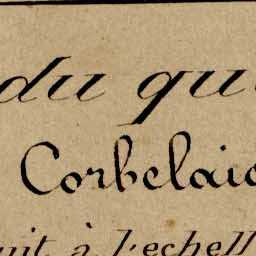 du qu
Corbelai
uit à l'echell